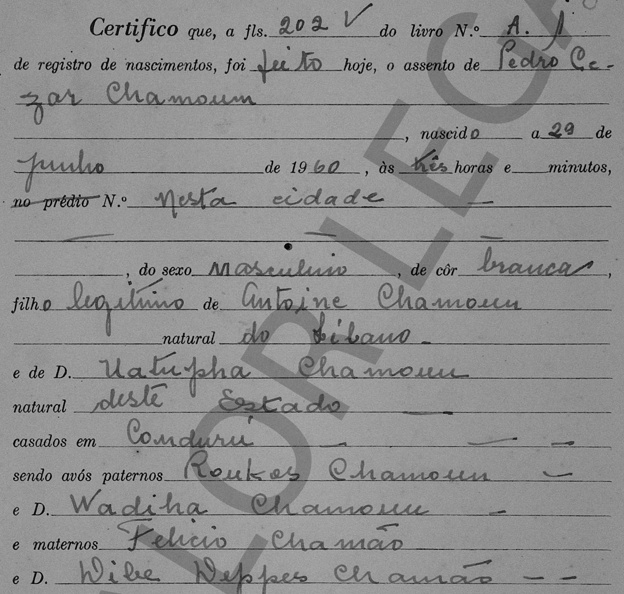 Certifico que, a fls. 202 V do livro N.º A. 1
de registro de nascimentos, foi feito hoje, o assento de Pedro Ce-
zar Chamoun
, nascido a 29 de
junho de 1960, às três horas e minutos,
no prédio N.º Nesta cidade —
— —
, do sexo masculino, de côr branca,
filho legítimo de Antoine Chamoun
natural do Líbano -
e de D. Chamoun
natural deste Estado —
casados em Condurú — — —
sendo avós paternos Roukos Chamoun —
e D. Wadiha Chamoun -
e maternos Felicio Chamão
e D. Wibe Chamão — —
VALOR LEGAL